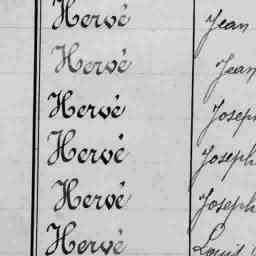 Hervé Jean
Hervé Jean
Hervé Joseph
Hervé Joseph
Hervé Joseph
Hervé Louis